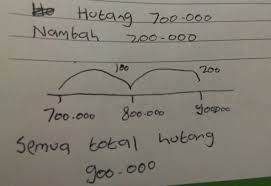 Hutang 700.000
Nambah 200.000
100 200
700.000 800.000 900000
Semua total hutang
900.000